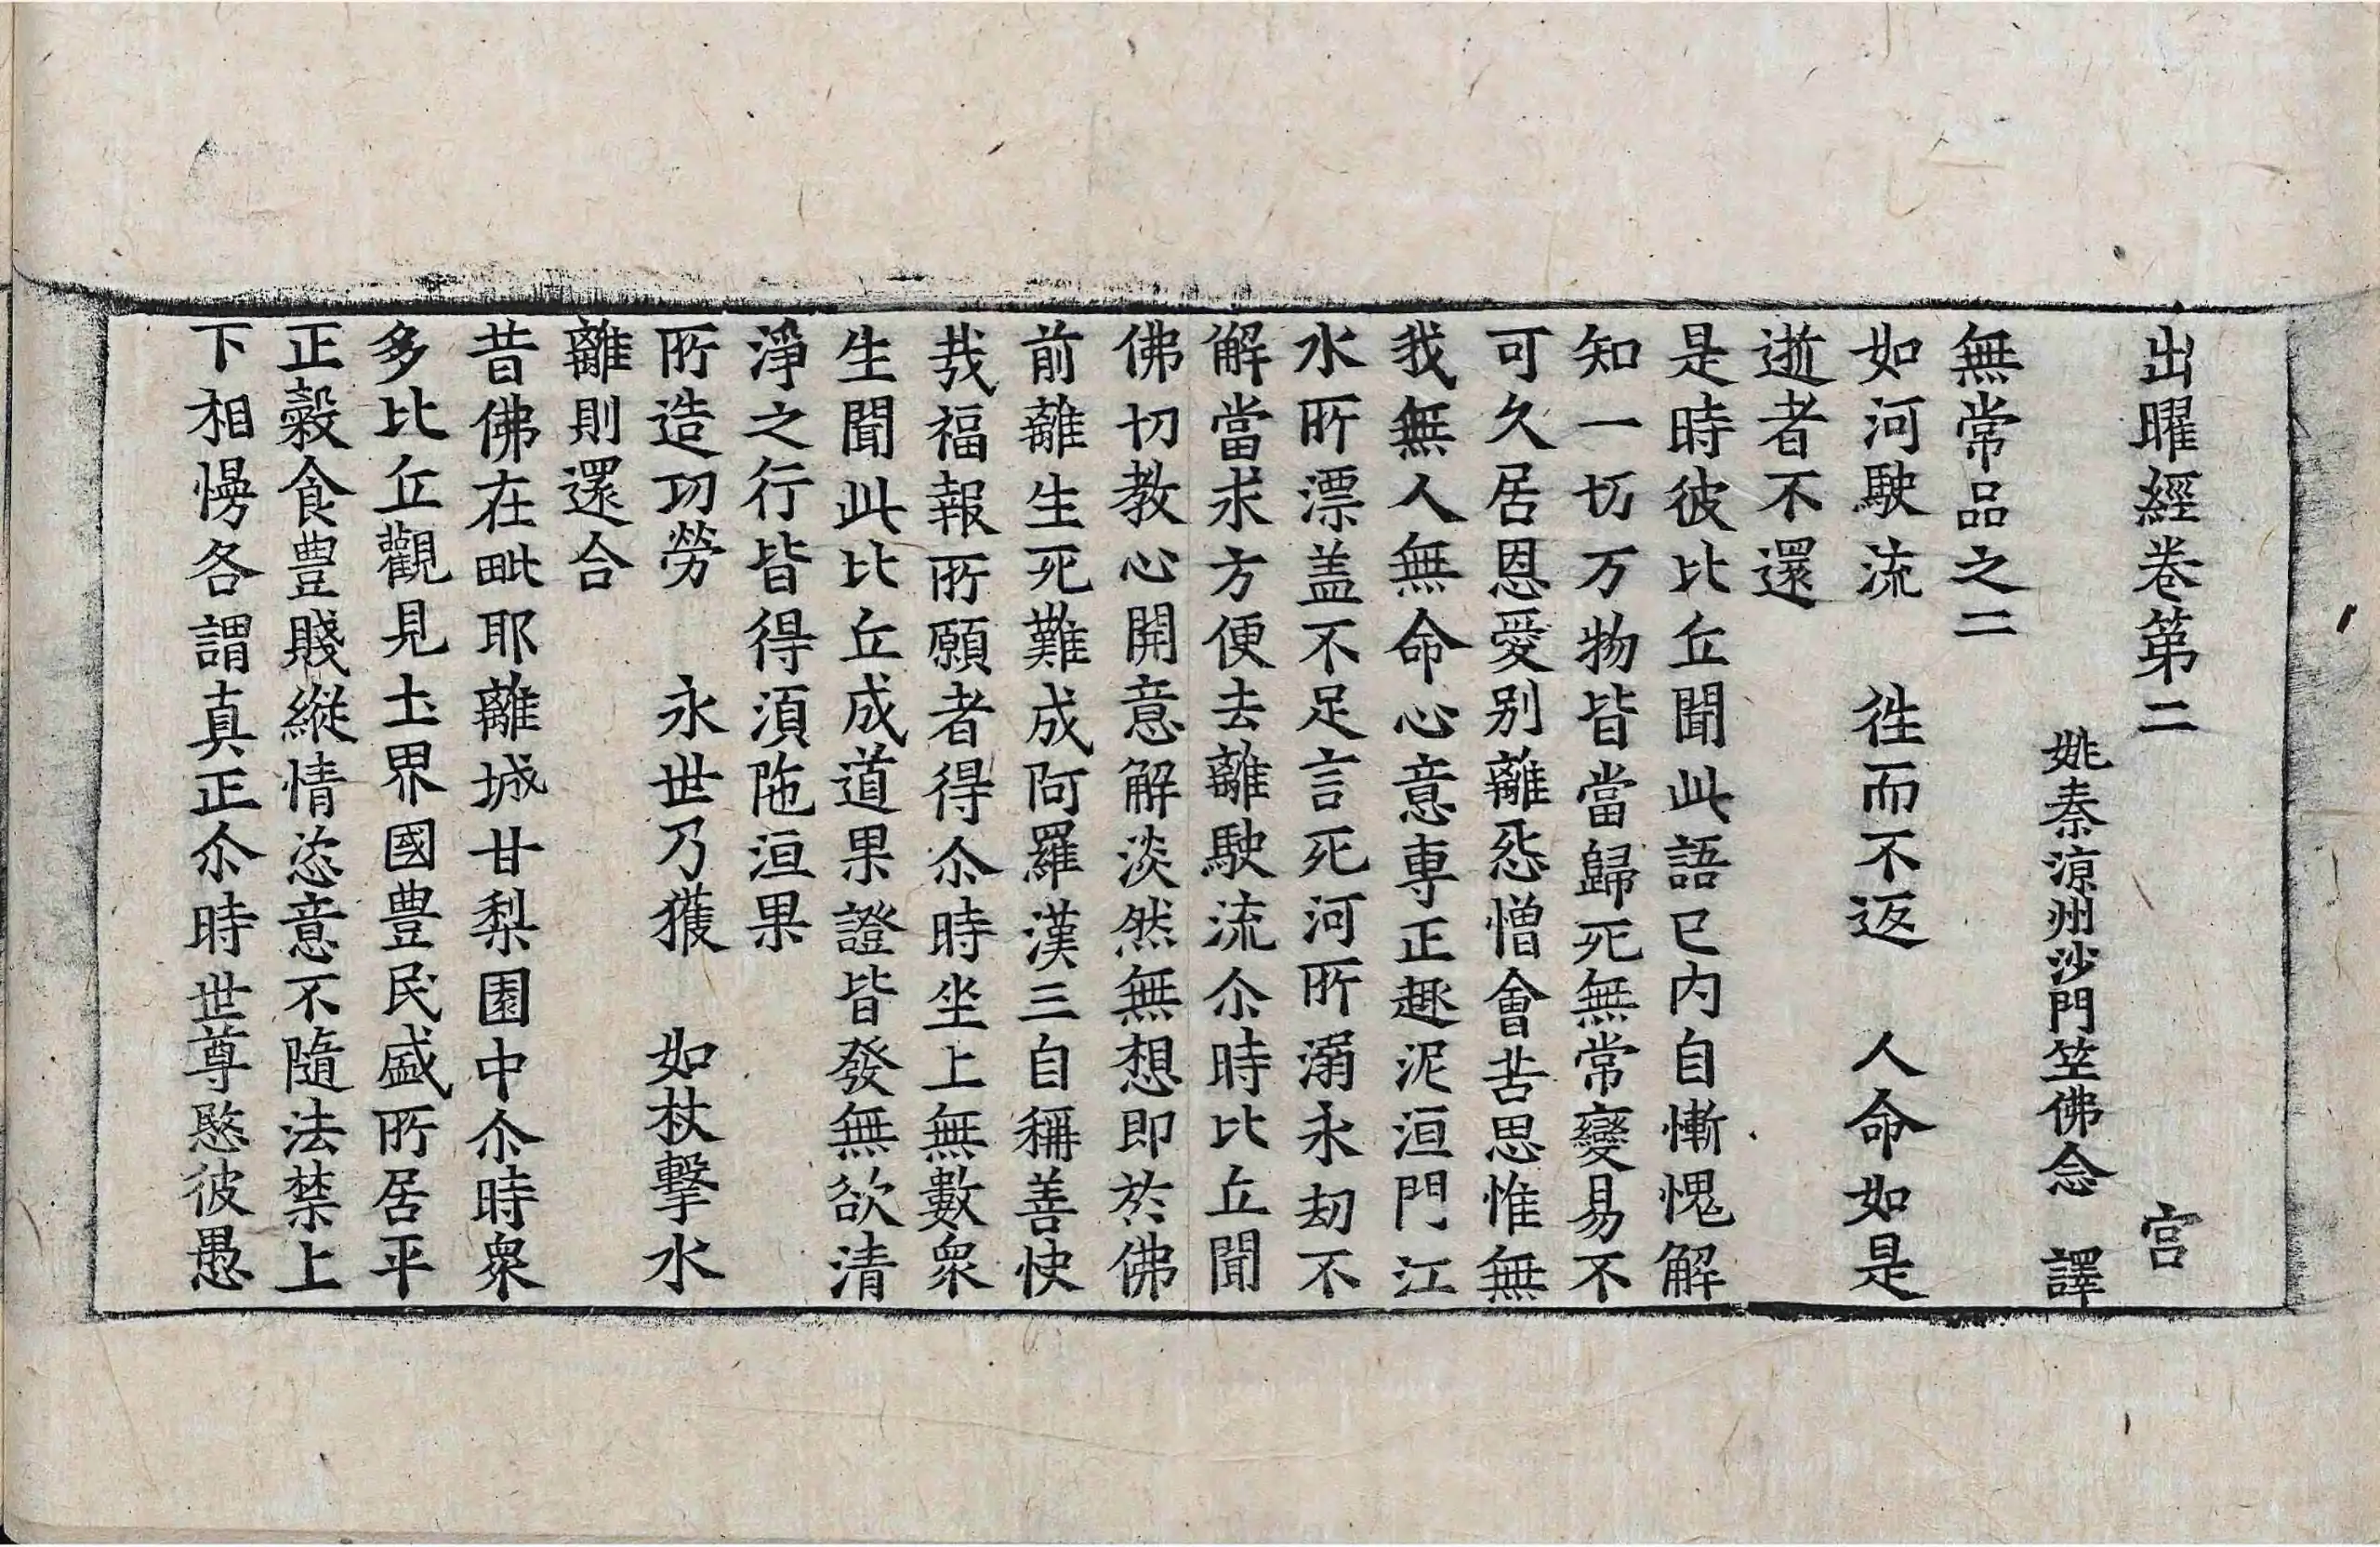 出曜經卷第二 宫
姚秦涼州沙門竺佛念 譯
無常品之二
如河駛流 徃而不返 人命如是
逝者不還
是時彼比丘聞此語已内自慚愧解
知一切万物皆當歸死無常變易不
可久居恩愛别離惌憎會苦思惟無
我無人無命心意専正趣泥洹門江
水所漂盖不足言死河所溺永劫不
解當求方便去離駛流尒時比丘聞
佛切教心開意解淡然無想即於佛
前離生死難成阿羅漢三自稱善快
㢤福報所願者得尒時坐上無數衆
生聞此比丘成道果證皆發無欲清
淨之行皆得湏陁洹果
所造功勞 永世乃獲 如杖擊水
離則還合
昔佛在毗耶離城甘梨園中尒時衆
多比丘觀見土界國豊民盛所居平
正穀食豊賤縱情恣意不隨法禁上
下相慢各謂真正尒時世尊愍彼愚